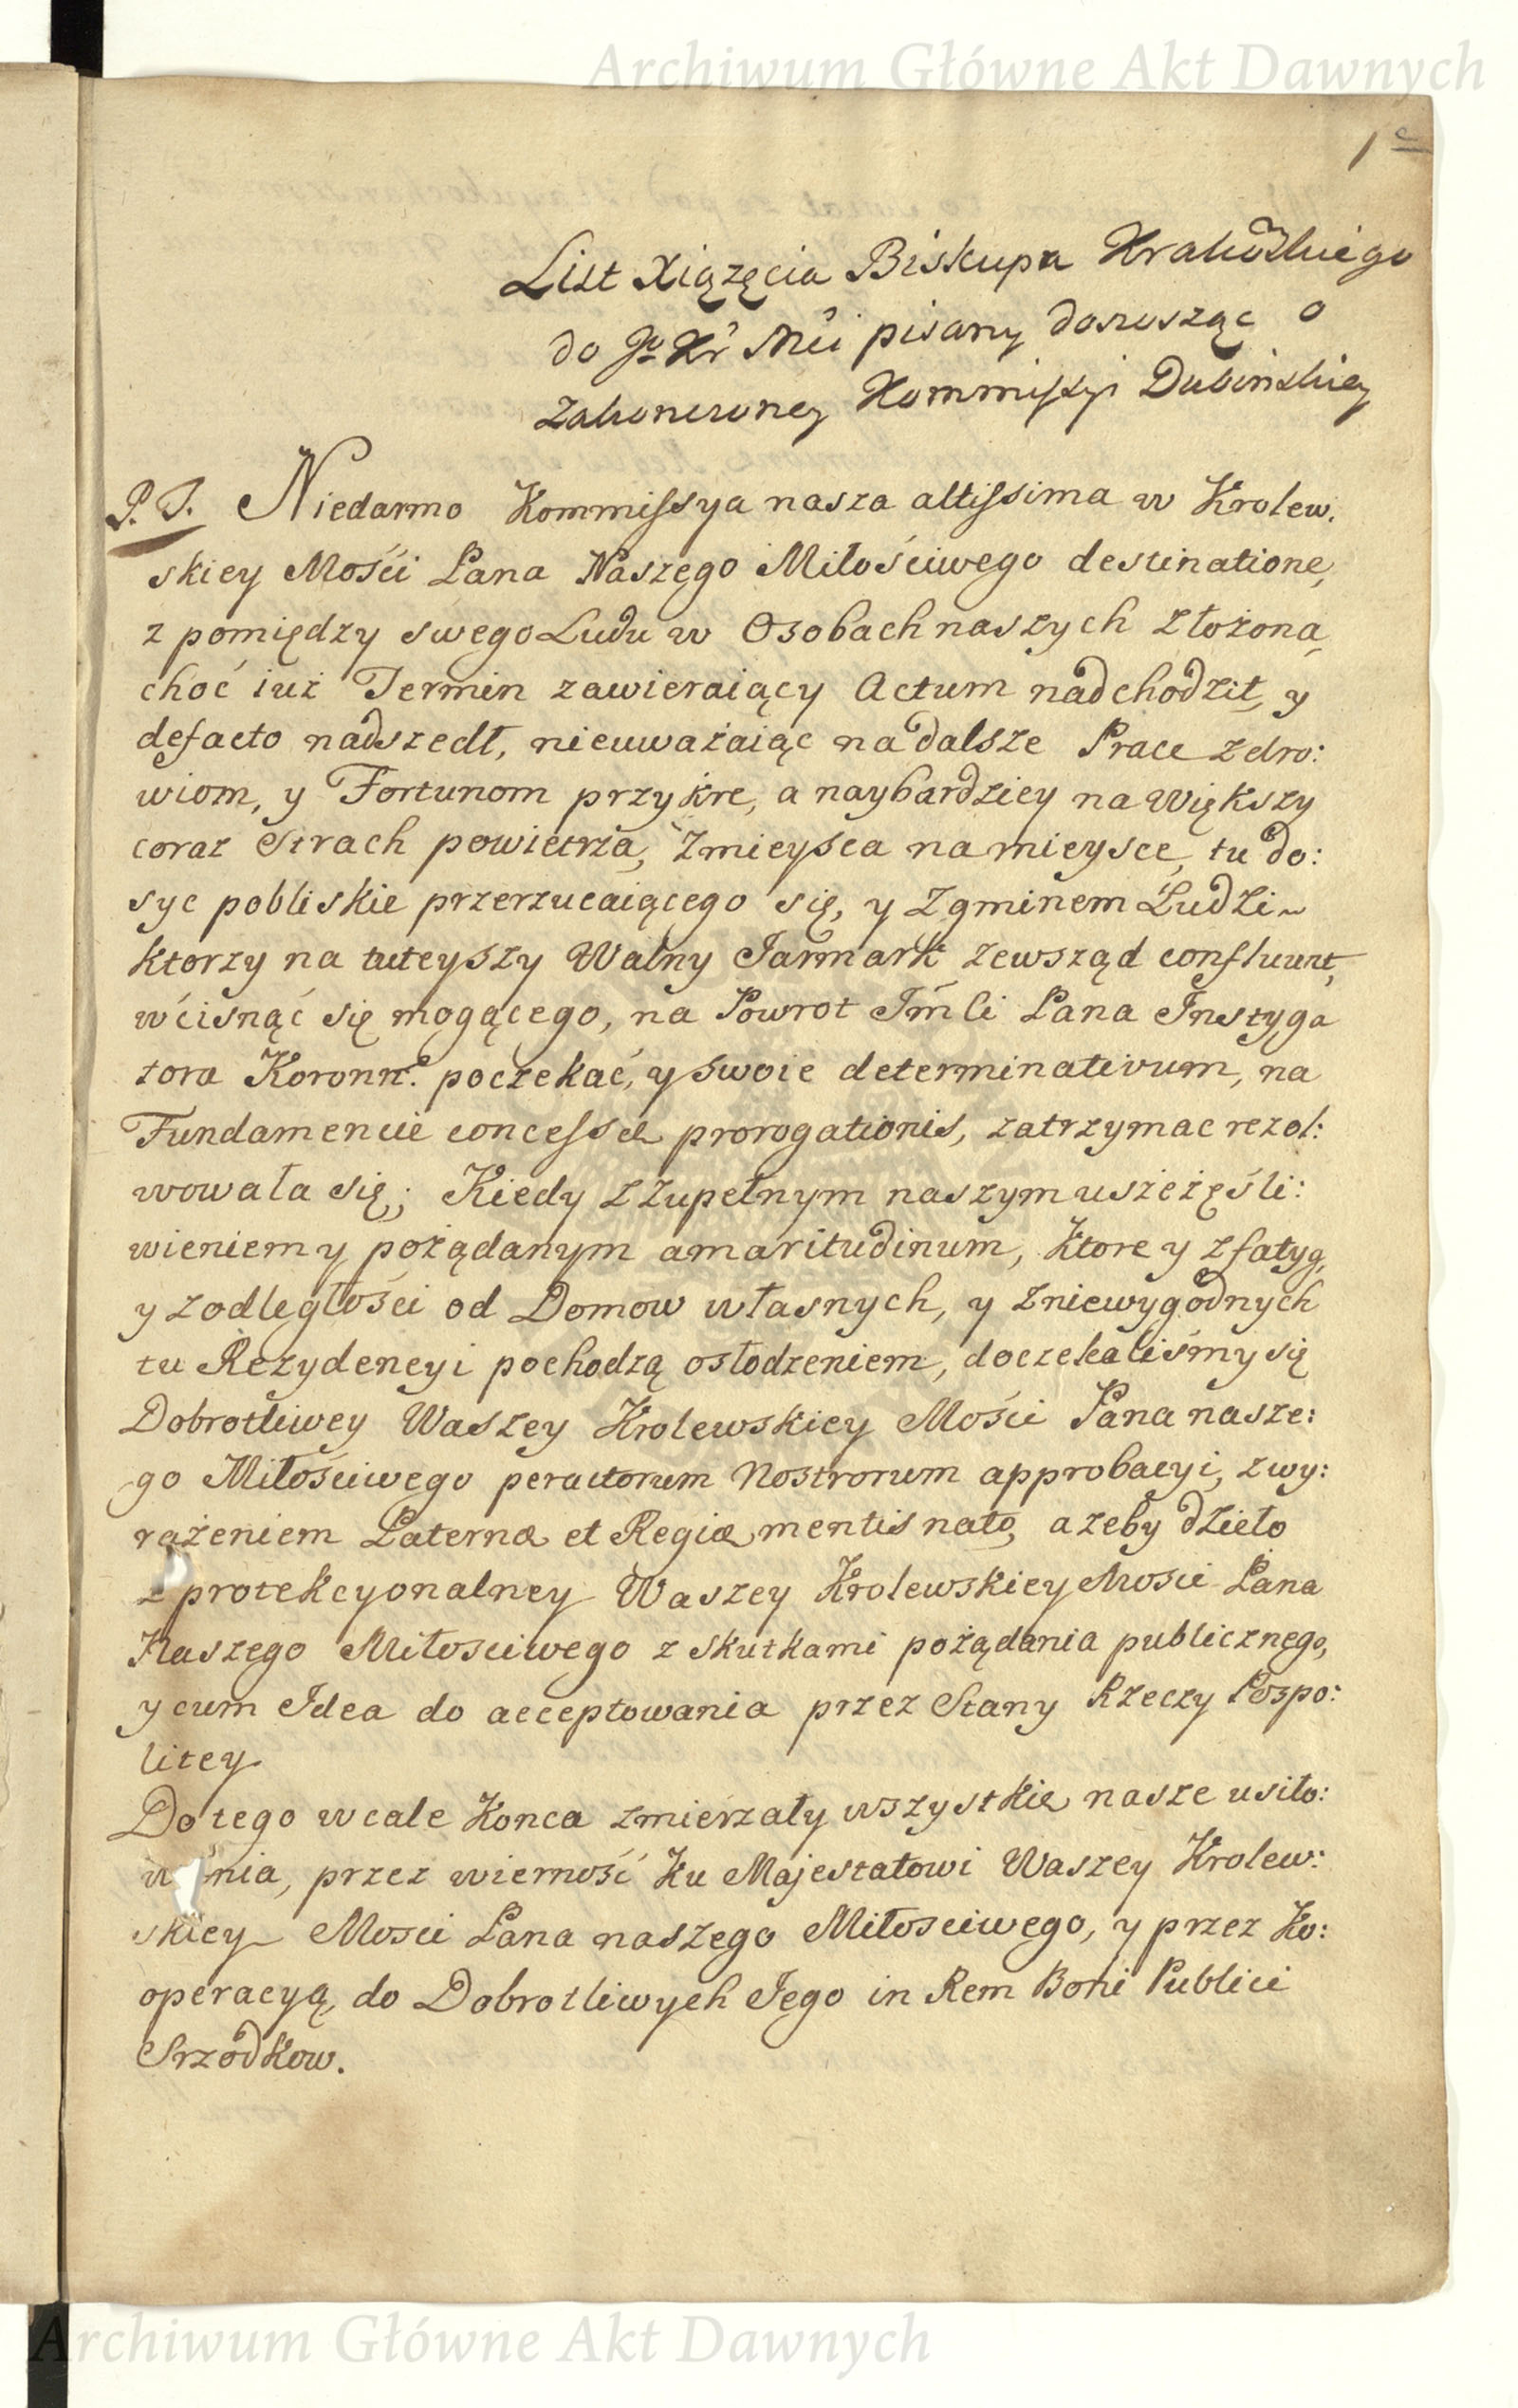 Archiwum Główne Akt Dawnych
1
List Xiązęcia Biskupa Krakowskiego
do Jo Kr Mci pisany donosząc o
Zakonczoney Kommissyi Dubinskiey
P. T. Niedarmo Kommissya nasza altissima W Krolew.
skiey Mości Pana Naszego Miłościwego destinatione,
z pomiędzy swego Ludu w Osobach naszych złożona,
choć iuż Termin zawieraiący Actum nadchodził, y
defacto nadszedł, nieuważaiąc na dalsze Prace zdro:
wiom, y Fortunom przykre, a naybardziey na Większy
coraz Strach powietrza, z mieysca na mieysce, tu do:
syc pobliskie przerzucaiącego się, y z gminem Ludzi
ktorzy na tuteyszy Walny Jarmark zewsząd confluunt,
wcisnąć się mogącego, na Powrot Jm̃ci Pana Instyga
tora Koronne. poczekać, y swoie determinativum, na
Fundamencie concessæ prorogationis, zatrzymac rezol:
wowała się; Kiedy z zupełnym naszym uszczęśli:
wieniem y pożądanym amaritudinum, Ktore y z fatyg,
y z odległości od Domow własnych, y z niewygodnych
tu Rezydencyi pochodzą osłodzeniem, doczekaliśmy się
Dobrotliwey Waszey Krolewskiey Mości Pana nasze:
go Miłościwego peractorum Nostrorum approbacyi, z wy:
rażeniem Paternæ et Regiæ mentis nato, azeby dzieło
z protekcyonalney Waszey Krolewskiey Mosci Pana
Naszego Miłosciwego z skutkami pożądania publicznego,
y cum Idea do acceptowania przez Stany Rzeczy Pospo:
litey
Do tego wcale Konca zmierzały wszystkie nasze usiło:
wania, przez wierność Ku Majestatowi Waszey Krolew:
skiey Mosci Pana naszego Miłosciwego, y przez Ko:
operacyą do Dobrotliwych Jego in Rem Boni Publici
Srzodkow.
Archiwum Główne Akt Dawnych